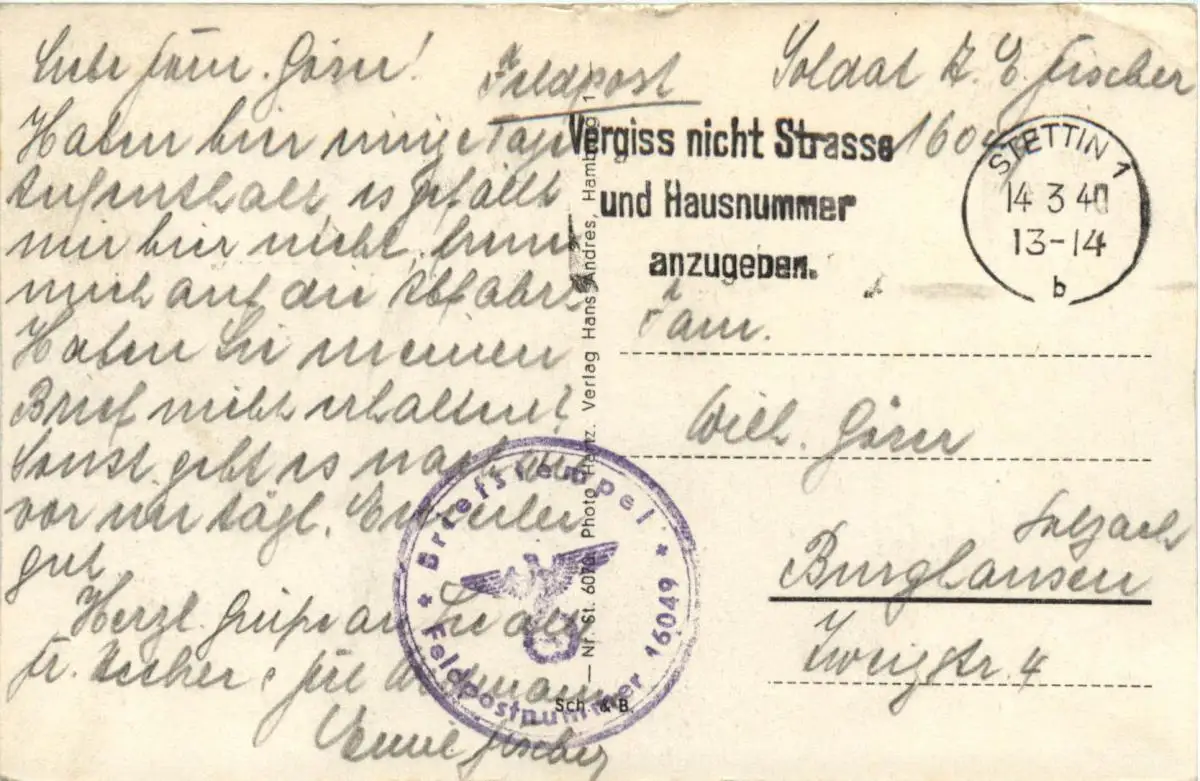 Liebe Fam. Görer!
Haben hier einige Tage
Aufenthalt, es gefällt
mir hier nicht, freue
mich auf die Abfahrt
Haben Sie meinen
Brief nicht erhalten?
Sonst geht es nach wie
vor mir tägl.
gut
Herzl. Grüße an Sie alle
Fr. Ascher, Frl.
Emil Fischer
Feldpost
Soldat Z. E. Fischer
16049
Vergiss nicht Strasse
und Hausnummer
anzugeben.
STETTIN 1
14 3 40
13-14
b
Fam.
Wilh. Görer
Salzach
Burghausen
Zweigstr. 4
Briefstempel
Feldpostnummer 16049
Nr. St. 6070 Photo Verlag Hans Andres, Hamburg 1
Sch. & B.